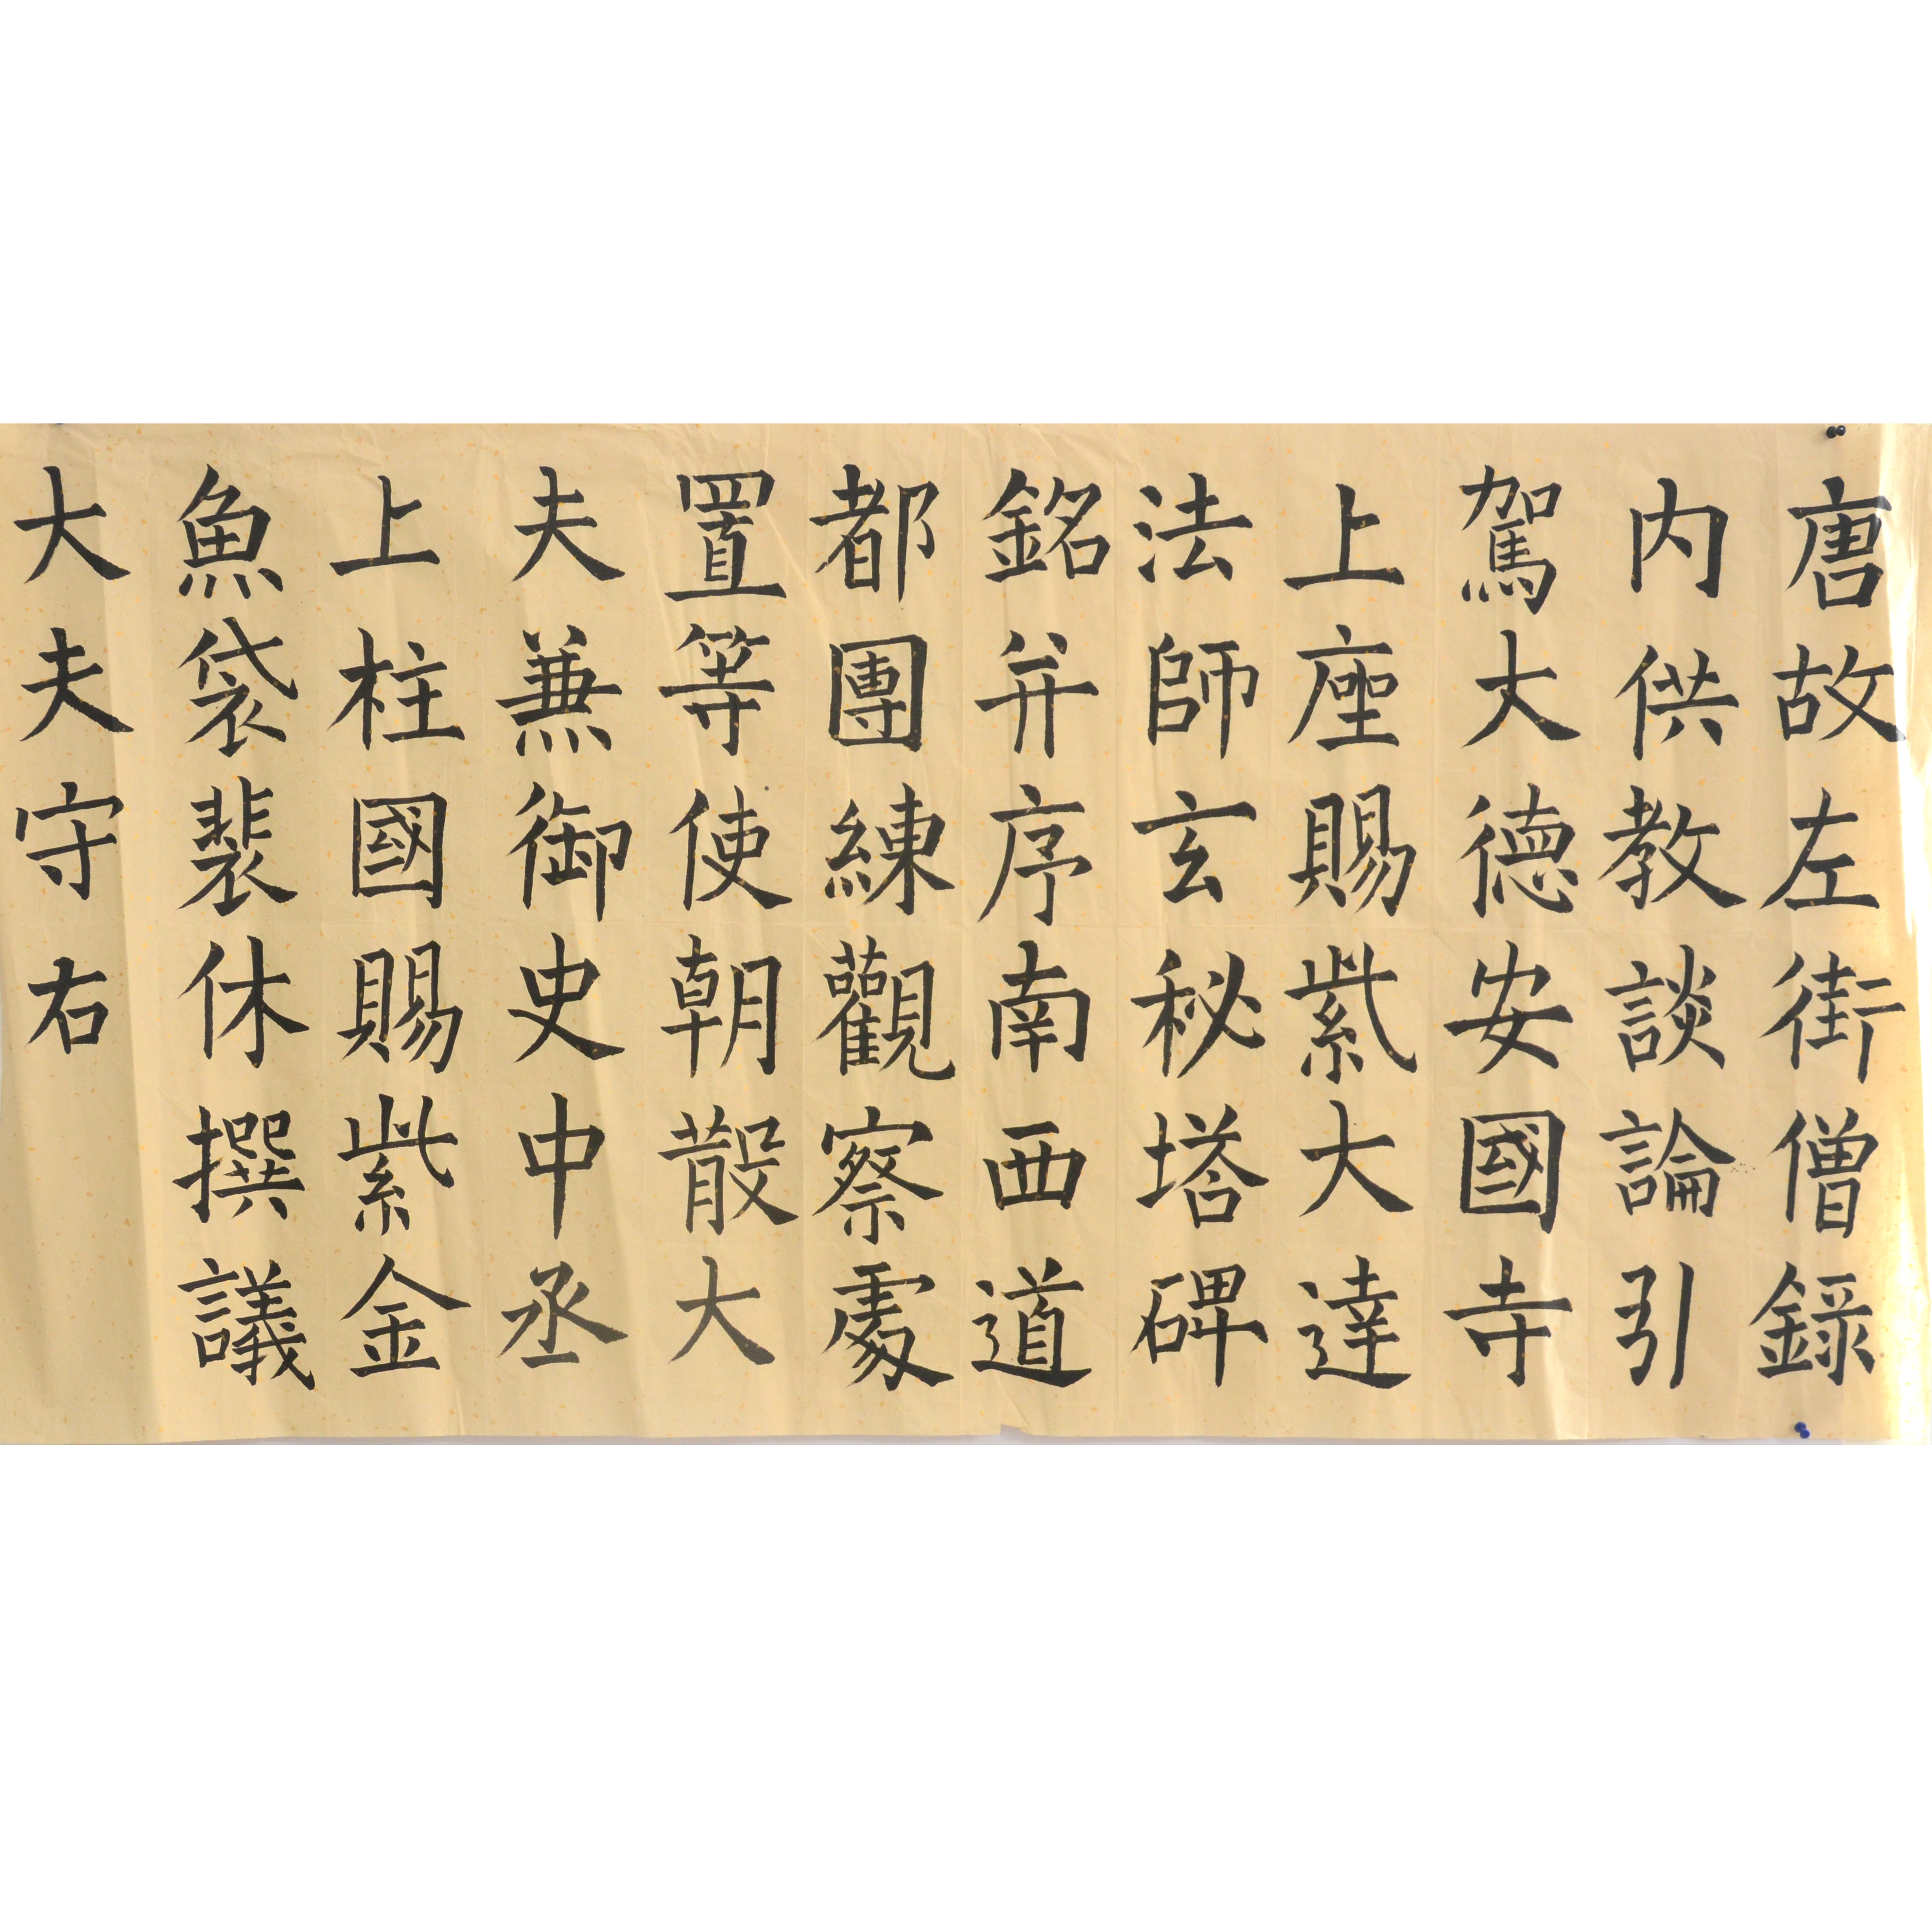 唐故左街僧録
内供教談論引
駕大德安國寺
上座賜紫大達
法師玄秘塔碑
銘并序南西道
都團練觀察處
置等使朝散大
夫兼御史中丞
上柱國賜紫金
魚袋裴休撰議
大夫守右